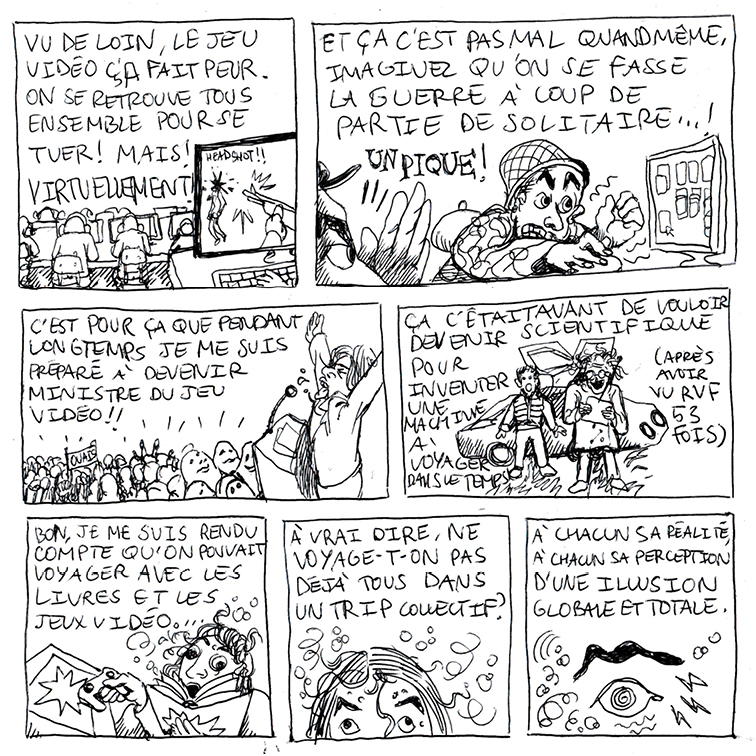 VU DE LOIN, LE JEU
VIDÉO ÇA FAIT PEUR.
ON SE RETROUVE TOUS
ENSEMBLE POUR SE
TUER! MAIS!
VIRTUELLEMENT
HEADSHOT!!
ET ÇA C'EST PAS MAL QUAND MÊME,
IMAGINEZ QU'ON SE FASSE
LA GUERRE À COUP DE
PARTIE DE SOLITAIRE...!
UN PIQUE!
C'EST POUR ÇA QUE PENDANT
LONGTEMPS JE ME SUIS
PRÉPARÉ À DEVENIR
MINISTRE DU JEU
VIDÉO!!
OUAIS
ÇA C'ÉTAIT AVANT DE VOULOIR
DEVENIR SCIENTIFIQUE
POUR
INVENTER
UNE
MACHINE
À
VOYAGER
DANS LE TEMPS
(APRÈS
AVOIR
VU RVF
53
FOIS)
BON, JE ME SUIS RENDU
COMPTE QU'ON POUVAIT
VOYAGER AVEC LES
LIVRES ET LES
JEUX VIDÉO....
À VRAI DIRE, NE
VOYAGE-T-ON PAS
DÉJÀ TOUS DANS
UN TRIP COLLECTIF?
À CHACUN SA RÉALITÉ,
À CHACUN SA PERCEPTION
D'UNE ILLUSION
GLOBALE ET TOTALE.